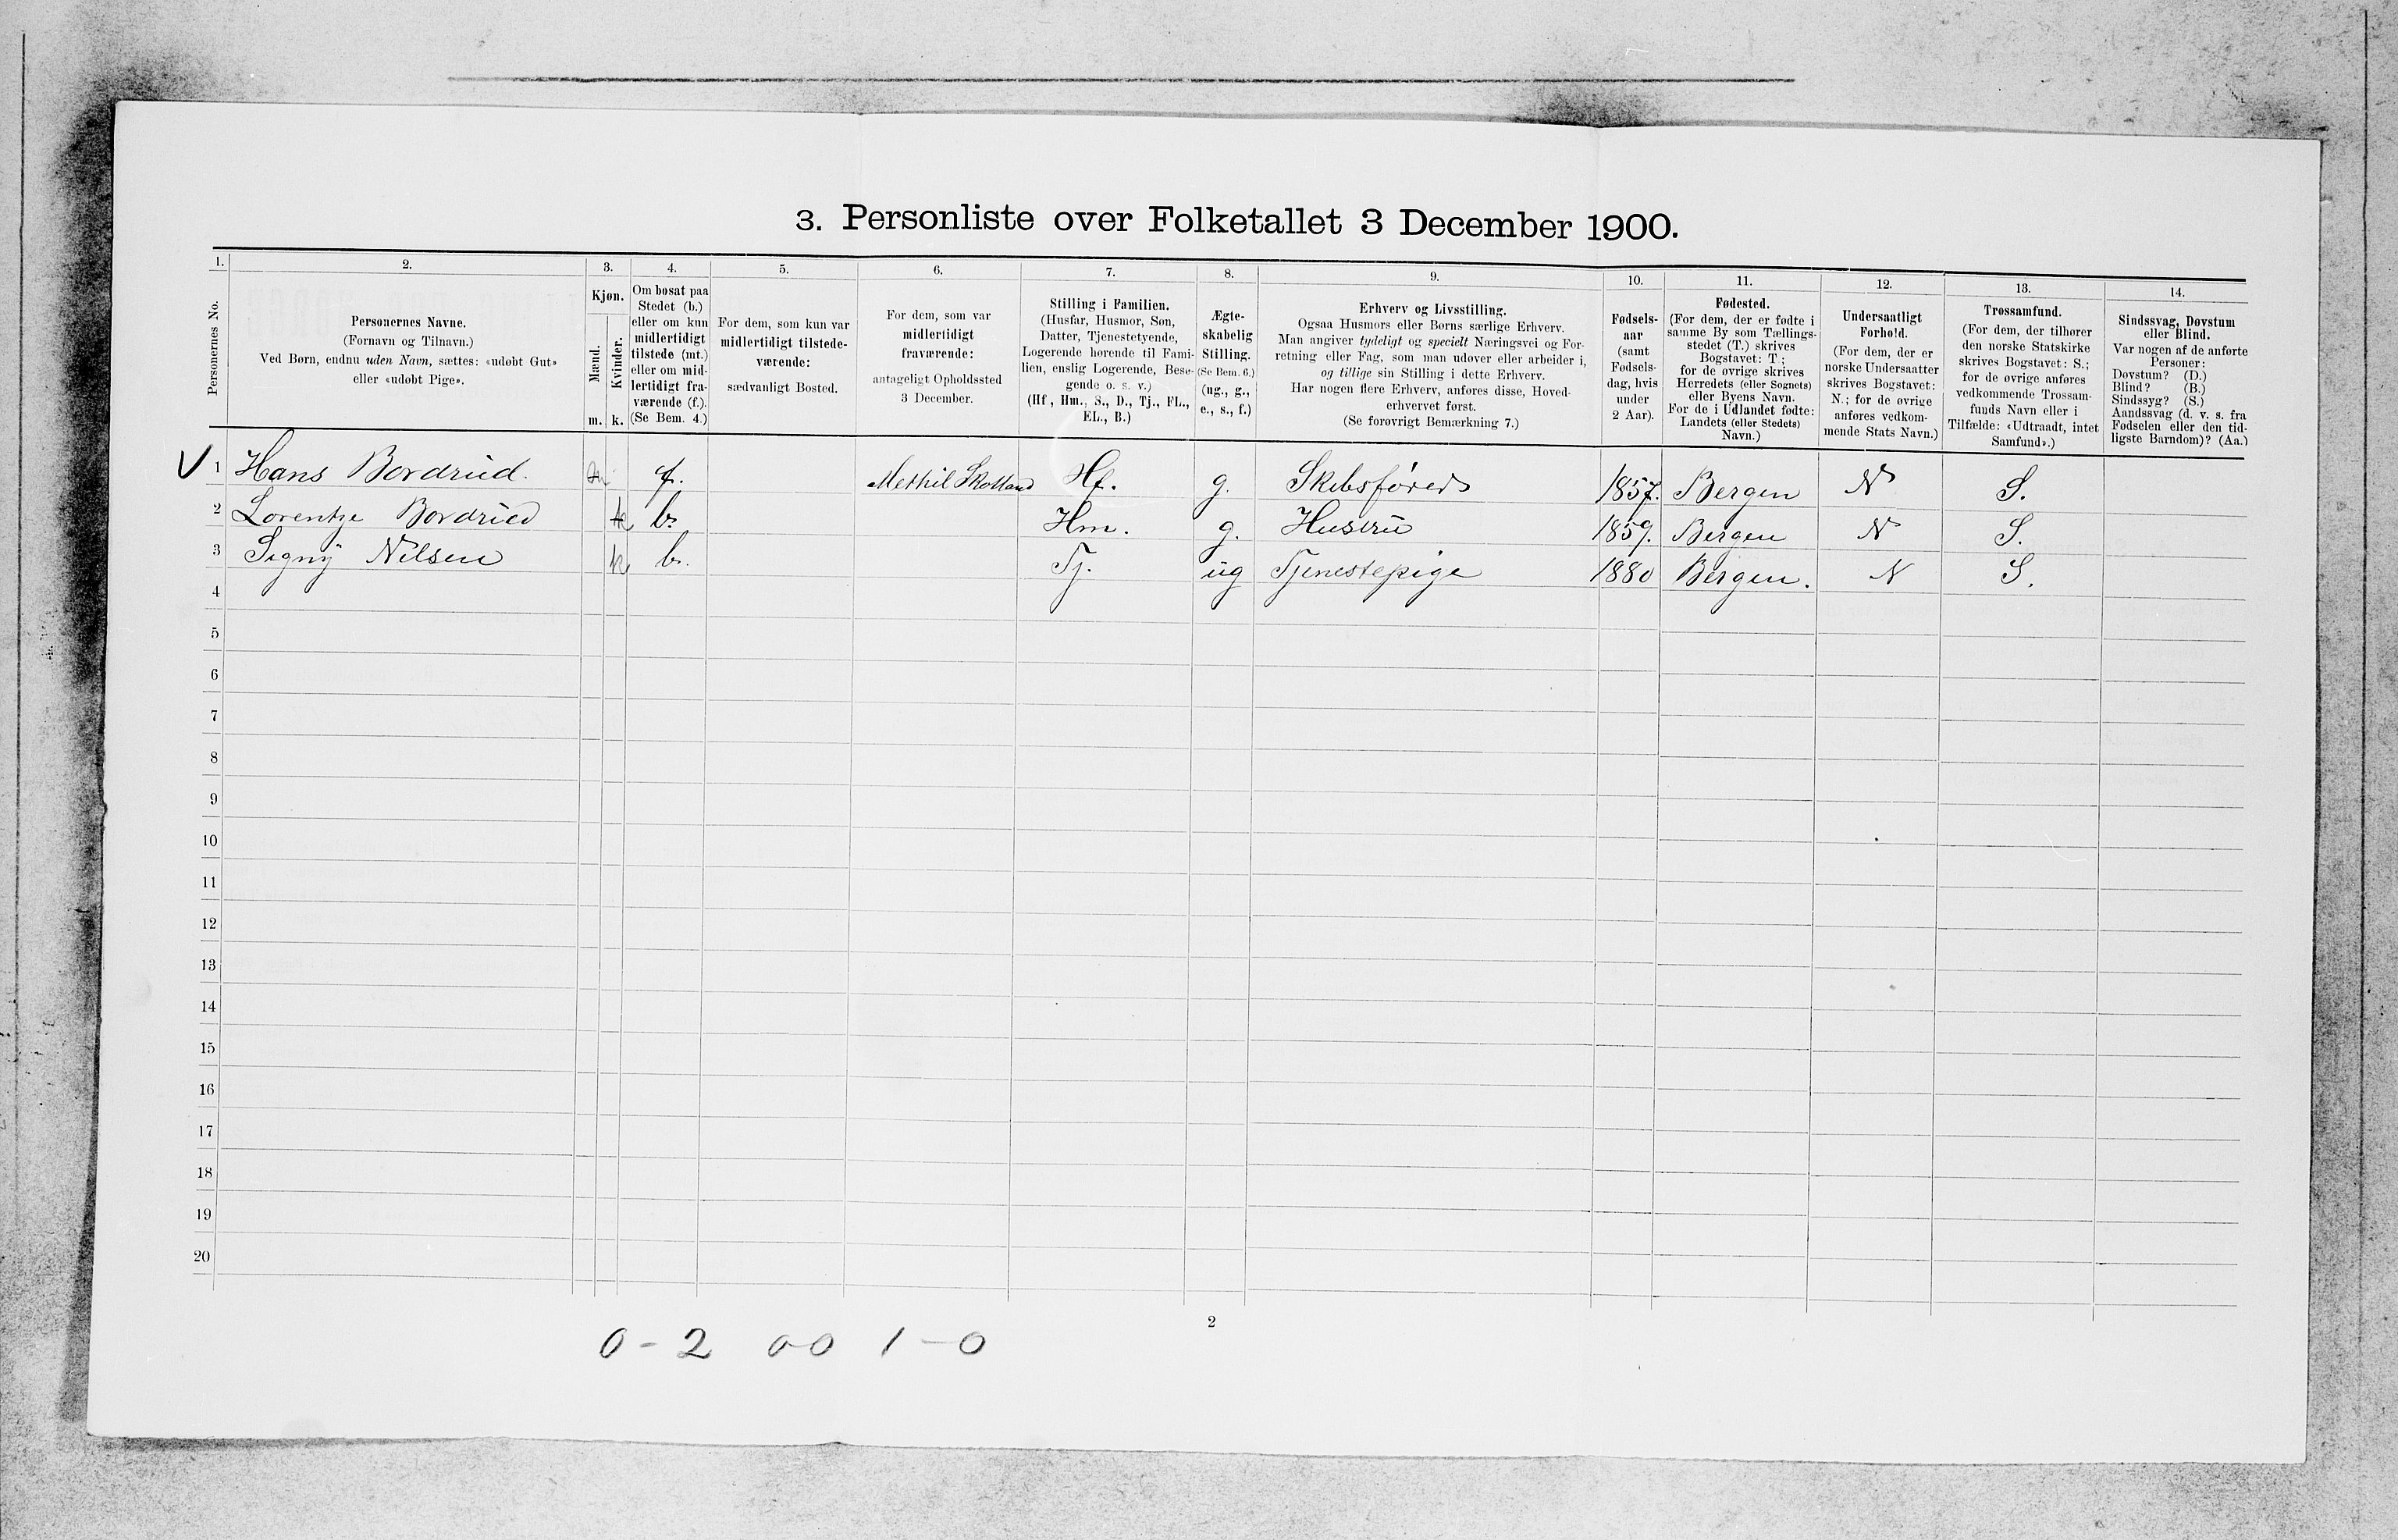 3. Personliste over Folketallet 3 December 1900.
1. 2. 3. 4. 5. 6. 7. 8. 9. 10. 11. 12. 13. 14.
Personernes No.
Personernes Navne.
(Fornavn og Tilnavn.)
Ved Børn, endnu uden Navn, sættes: «udøbt Gut»
eller «udøbt Pige».
Kjøn.
Mænd.
Kvinder.
m. k.
Om bosat paa
Stedet (b.)
eller om kun
midlertidigt
tilstede (mt.)
eller om mid-
lertidigt fra-
værende (f.).
(Se Bem. 4.)
For dem, som kun var
midlertidigt tilstede-
værende:
sædvanligt Bosted.
For dem, som var
midlertidigt
fraværende:
antageligt Opholdssted
3 December.
Stilling i Familien.
(Husfar, Husmor, Søn,
Datter, Tjenestetyende,
Logerende hørende til Fami-
lien, enslig Logerende, Besø-
gende o. s. v.)
(Hf, Hm., S., D., Tj., FL.,
EL., B.)
Ægte-
skabelig
Stilling.
(Se Bem. 6.)
(ug., g.,
e., s., f.)
Erhverv og Livsstilling.
Ogsaa Husmors eller Børns særlige Erhverv.
Man angiver tydeligt og specielt Næringsvei og For-
retning eller Fag, som man udøver eller arbeider i,
og tillige sin Stilling i dette Erhverv.
Har nogen flere Erhverv, anføres disse, Hoved-
erhvervet først.
(Se forøvrigt Bemærkning 7.)
Fødsels-
aar
(samt
Fødsels-
dag, hvis
under
2 Aar).
Fødested.
(For dem, der er fødte i
samme By som Tællings-
stedet (T.) skrives
Bogstavet: T;
for de øvrige skrives
Herredets (eller Sognets)
eller Byens Navn.
For de i Udlandet fødte:
Landets (eller Stedets)
Navn.)
Undersaatligt
Forhold.
(For dem, der er
norske Undersaatter
skrives Bogstavet:
N.; for de øvrige
anføres vedkom-
mende Stats Navn.)
Trossamfund.
(For dem, der tilhører
den norske Statskirke
skrives Bogstavet: S.;
for de øvrige anføres
vedkommende Trossam-
funds Navn eller i
Tilfælde: «Udtraadt, intet
Samfund».)
Sindssvag, Døvstum
eller Blind.
Var nogen af de anførte
Personer:
Døvstum? (D.)
Blind? (B.)
Sindssyg? (S.)
Aandssvag (d. v. s. fra
Fødselen eller den tid-
ligste Barndom)? (Aa.)
V 1 Hans Bordrud. m f. Methil Skotland Hf. g. Skibsfører 1857. Bergen N S.
2 Lorentze Bordrud k b. Hm. g. Hustru 1859. Bergen N S.
3 Signy Nilsen k b. Tj. ug Tjenestepige 1880 Bergen. N S.
4
5
6
7
8
9
10
11
12
13
14
15
16
17
18
19
20
2
0-2 0-0 1-0